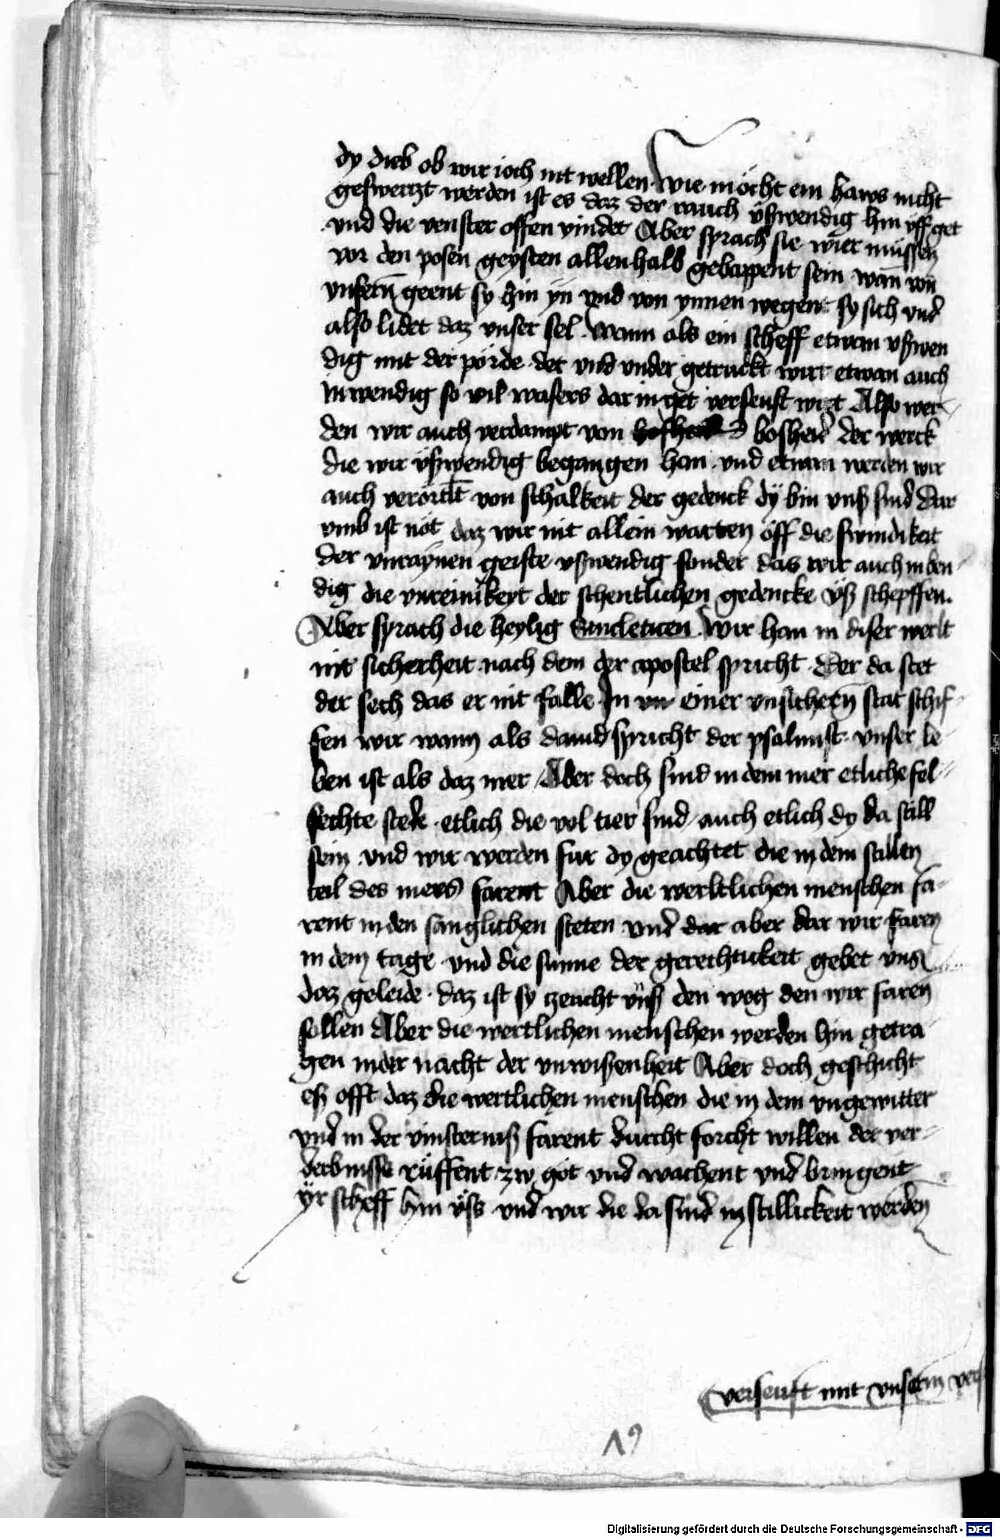 dy dieb ob wir ioch nit wellen Wie mocht ein haws nicht
geswerczt werden ist es daz der rauch vßwendig hin vff get
vnd die venster offen vindet Aber sprach sie wier mussen
vor den posen geysten allenhalb gebappent sein wan von
vnsern geent sy hin yn vnd von ynnen wegent sy sich vnd
also lidet daz vnser sel Wann als ein scheff etwan vßwen
dig mit der pörde der vnd vnder getruckt wirt etwan auch
Inwendig so vil wassers dar in get versenkt wirt Also wer
den wir auch verdampt von bosheit der werck
die wir vßwendig begangen han vnd etwan werden wir
auch verortilt von schalkeit der gedenck dy bin vnß sind Dar
vmb ist nöt daz wir nit allein warten öff die swindikeit
der vnraynen geiste vßwendig sonder das wir auch inben
dig die vnreinikeyt der schentlichen gedencke vß schepffen.
Aber sprach die heylig Sincleticen Wir han in diser werlt
nit sicherheit nach dem der apostel spricht Der da stet
der sech das er nit falle In einer vnsichern stat schif
fen wir wann als dauid spricht der psalmist vnser le
ben ist als daz mer Aber doch sind in dem mer etliche fel
sechte stete etlich die vol tier sind auch etlich dy da still
sein vnd wir werden fur dy geachtet die in dem stillen
teil des mers farent Aber die werltlichen menschen fa
rent in den sanglichen steten vnd dar aber dar wir faren
in dem tage vnd die sunne der gerechtickeit gebet vns
daz geleide daz ist sy zeucht vnß den weg den wir faren
sollen Aber die wertlichen menschen werden hin getra
gen in der nacht der vnwißenheit Aber doch geschicht
eß offt daz die wertlichen menschen die in dem vngewitter
vnd in der vinsterniß farent durcht forcht willen der ver
derbnisse rüffent zw got vnd wachent vnd bringent
yr scheff hin vß vnd wir die da sind in stillickeit werden
versenkt mit vnserm
19
Digitalisierung gefördert durch die Deutsche Forschungsgemeinschaft - DFG